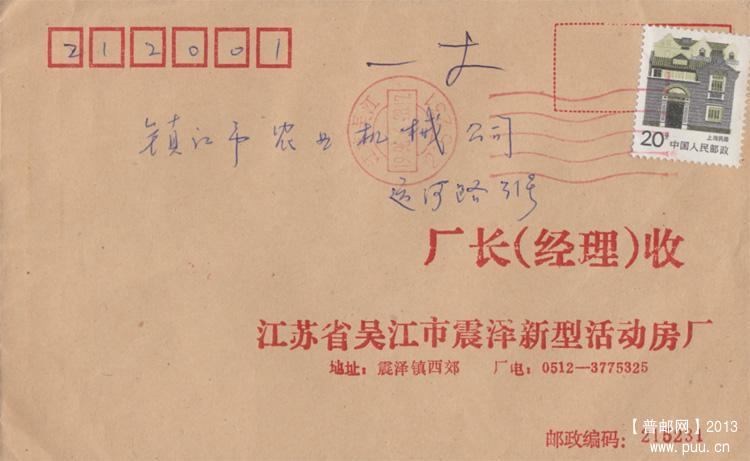 212001
镇江市农业机械公司
运河路31号
20分
上海民居
中国人民邮政
厂长(经理)收
江苏省吴江市震泽新型活动房厂
地址：震泽镇西郊 厂电：0512—3775325
邮政编码：215231
【普邮网】2013
www.puu.cn